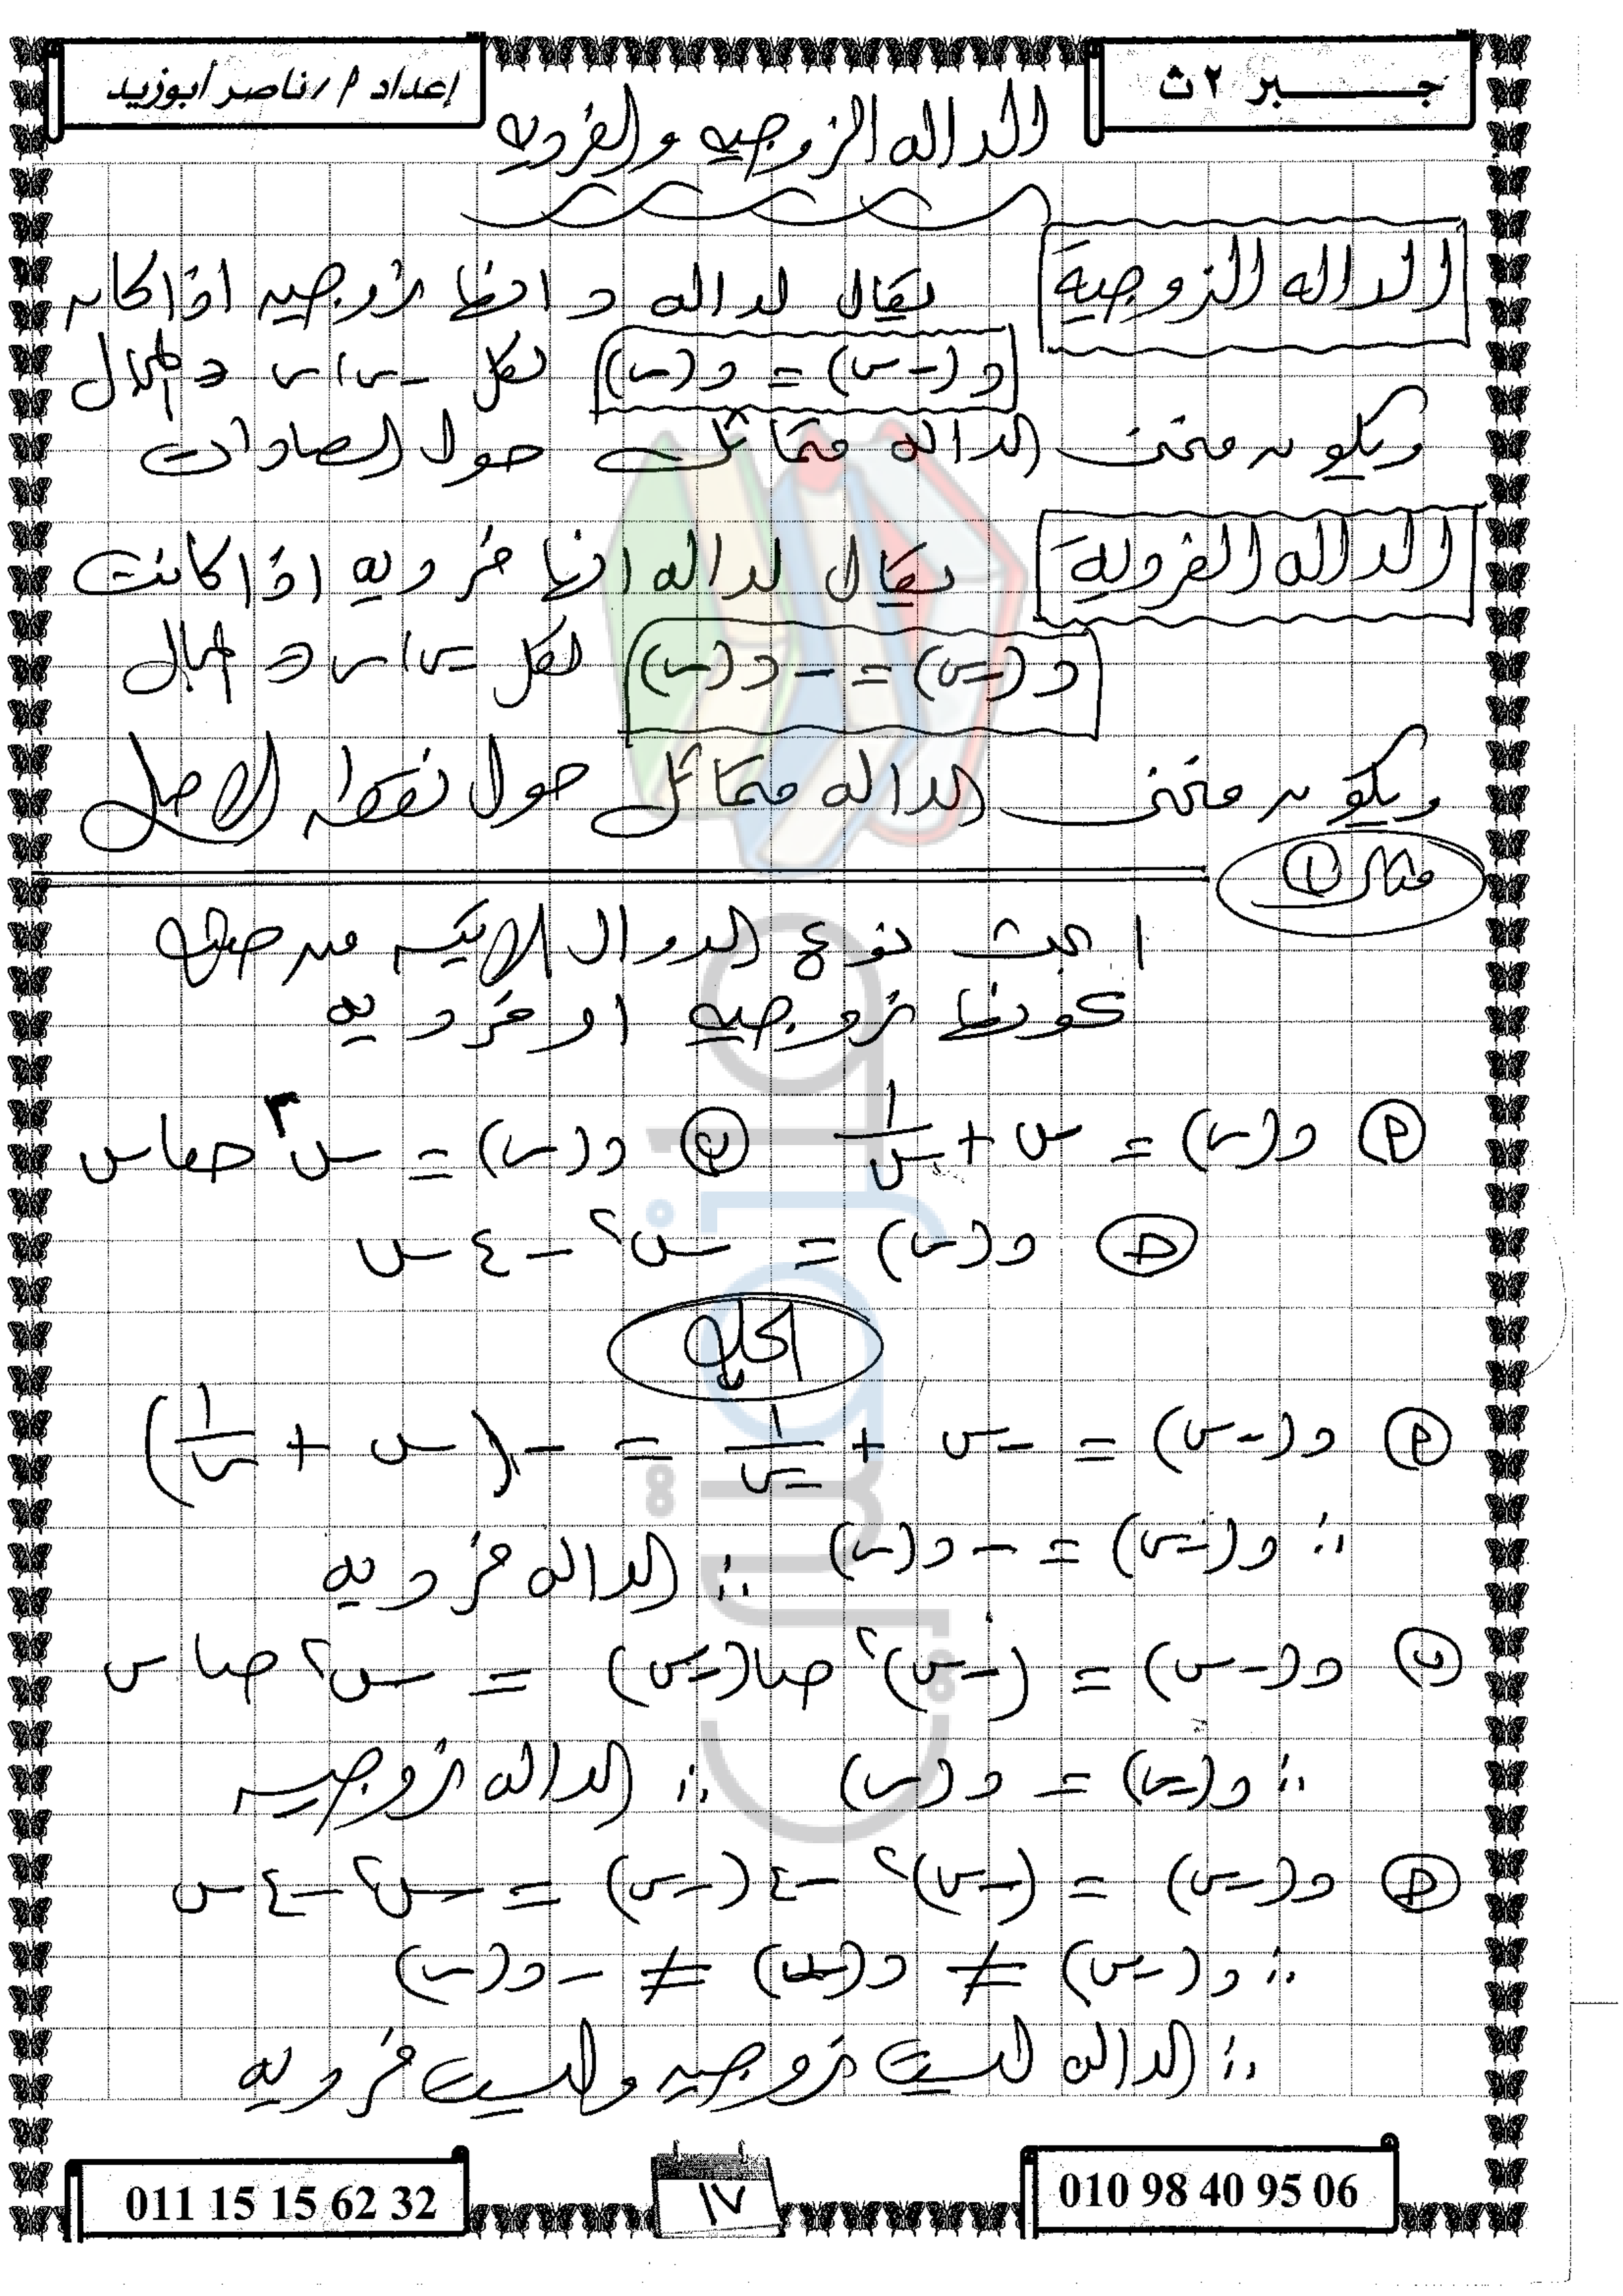 جـــبر ٢ ث
إعداد م/ ناصر أبوزيد
الداله الزوجيه والفرديه
الداله الزوجية يقال لداله د انها زوجيه اذا كان
د(-س) = د(س) لكل -س، س ∈ المجال
ويكون منحنى الداله متماثل حول الصادات
الداله الفردية يقال لداله انها فرديه اذا كانت
د(-س) = - د(س) لكل -س، س ∈ المجال
ويكون منحنى الداله متماثل حول نقطه الاصل
مثال ١
ابحث نوع الدوال الاتيه من حيث
كونها زوجيه او فرديه
أ د(س) = س + ١/س ب د(س) = س٣ حاس
حـ د(س) = س٢ - ٤س
الحل
أ د(-س) = -س + ١/-س = -(س + ١/س)
∴ د(-س) = - د(س) ∴ الداله فرديه
ب د(-س) = (-س)٢ حتا(-س) = س٢ حتاس
∴ د(-س) = د(س) ∴ الداله زوجيه
حـ د(-س) = (-س)٢ - ٤(-س) = س٢ - ٤س
∴ د(-س) ≠ د(س) ≠ - د(س)
∴ الداله ليست زوجيه وليست فرديه
010 98 40 95 06
١٧
011 15 15 62 32